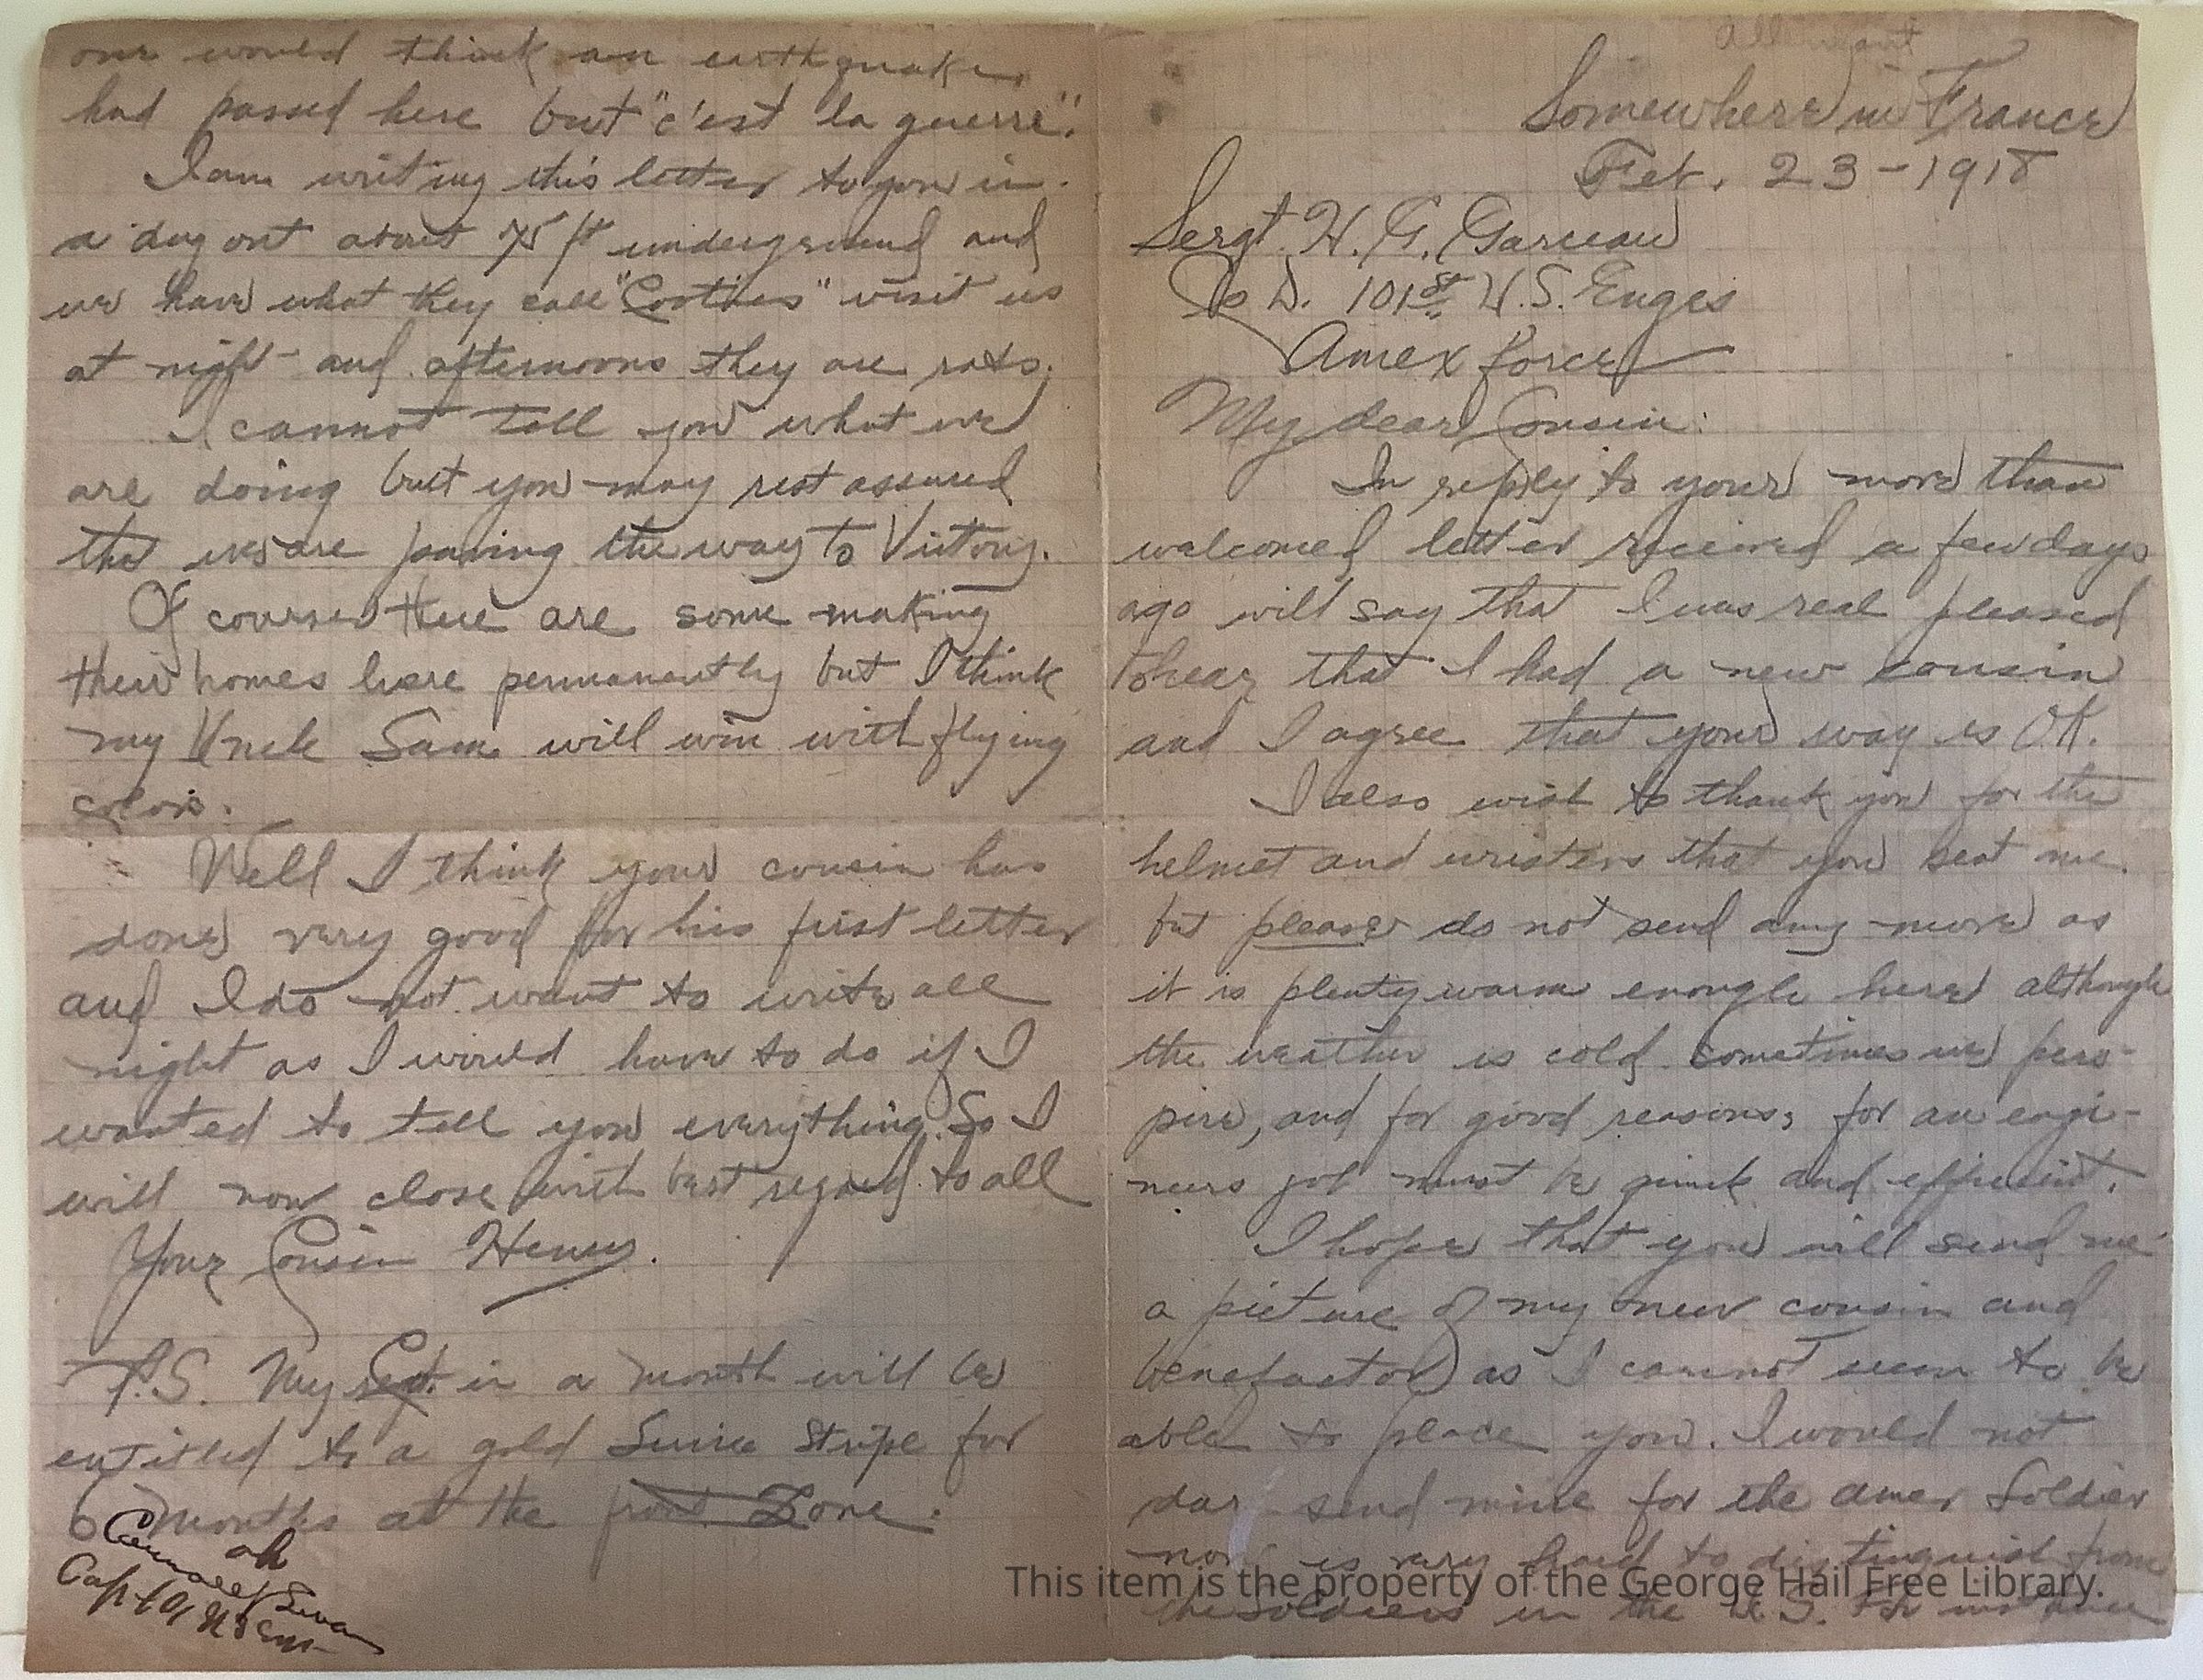 Somewhere in France
Feb. 23-1918
Sergt. H. G. Gareau
Co D. 101st U.S. Engrs
Amex force
My dear Cousin:
In reply to your more than
welcomed letter received a few days
ago will say that I was real pleased
to hear that I had a new cousin
and I agree that your way is OK.
I also wish to thank you for the
helmet and wristers that you sent me.
but please do not send any more as
it is plenty warm enough here although
the weather is cold sometimes we pers-
pire, and for good reasons; for an engi-
neers job must be quick and efficient.
I hope that you will send me
a picture of my new cousin and
benefactor as I cannot seem to be
able to place you. I would not
dare send mine for the amer soldier
now is very hard to distinguish from
the soldiers in the U.S. for instance
one would think an earthquake
had passed here but "c'est la guerre".
I am writing this letter to you in
a dug out about 75 ft underground and
we have what they call "Cooties" visit us
at night and afternoons they are rats.
I cannot tell you what we
are doing but you may rest assured
that we are paving the way to Victory.
Of course there are some making
their homes here permanently but I think
my Uncle Sam will win with flying
colors.
Well I think your cousin has
done very good for his first letter
and I do not want to write all
night as I would have to do if I
wanted to tell you everything. So I
will now close with best regard to all
Your Cousin Henry.
P.S. My Sgt. in a month will be
entitled to a gold Service stripe for
6 months at the front Zone.
ok
Capt 101 US Eng
This item is the property of the George Hail Free Library.